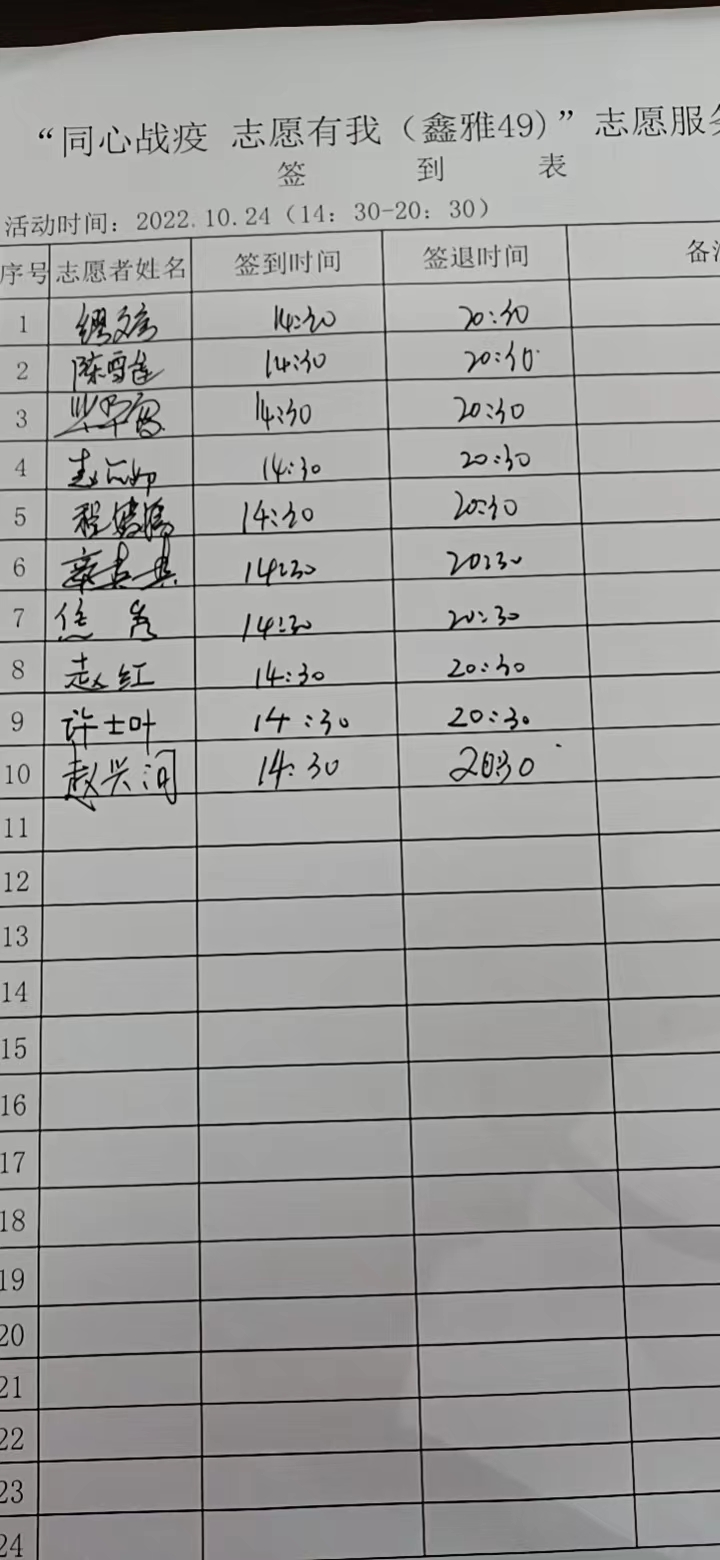 “同心战疫 志愿有我（鑫雅49）”志愿服务
签 到 表
活动时间：2022.10.24（14：30-20：30）
序号 志愿者姓名 签到时间 签退时间 备注
1 14:30 20:30
2 陈雪莲 14:30 20:30
3 14:30 20:30
4 赵 14:30 20:30
5 程 14:30 20:30
6 14:30 20:30
7 14:30 20:30
8 赵红 14:30 20:30
9 许士叶 14:30 20:30
10 赵兴润 14:30 20:30
11
12
13
14
15
16
17
18
19
20
21
22
23
24